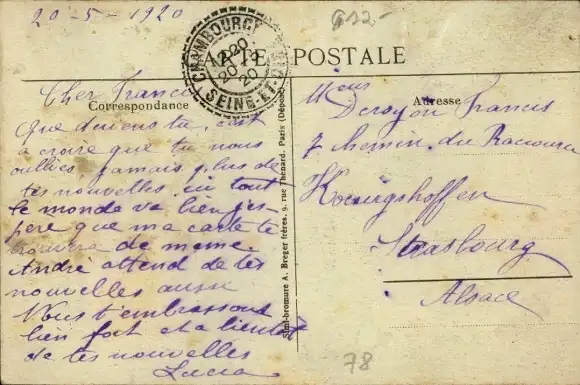 20-5-1920
612-
CHAMBOURCY
20
20
SEINE-ET-OISE
CARTE POSTALE
Cher Francis
Correspondance
Que deviens tu, c'est
a croire que tu nous
oublies, jamais plus de
tes nouvelles, ici tout
le monde va bien j'es
père que ma carte te
trouvera de meme.
André attend de tes
nouvelles aussi
Nous t'embrassons
bien fort et a bientot
de tes nouvelles
Lucia
Simi-bromure A. Breger frères, 9, rue Thénard. Paris (Déposé)
Adresse
Mieur
Deroyon Francis
7 chemin du
Kœnigshoffen
Strasbourg
Alsace
78